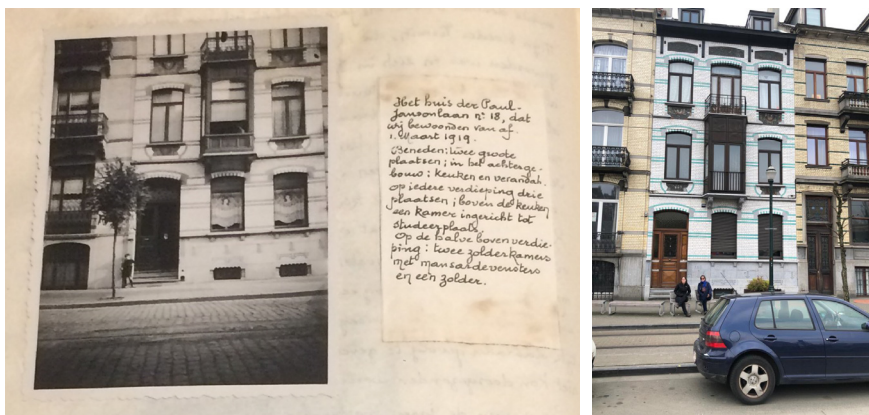 Het huis der Paul-
Jansonlaan nr 18, dat
wij bewoonden van af
1 Maart 1919.
Beneden: twee groote
plaatsen; in het achterge-
bouw: keuken en verandah.
op iedere verdieping drie
plaatsen; boven de keuken
een kamer ingericht tot
studeerplaats.
Op de halve boven verdie-
ping: twee zolderkamers
met mansardevensters
en een zolder.